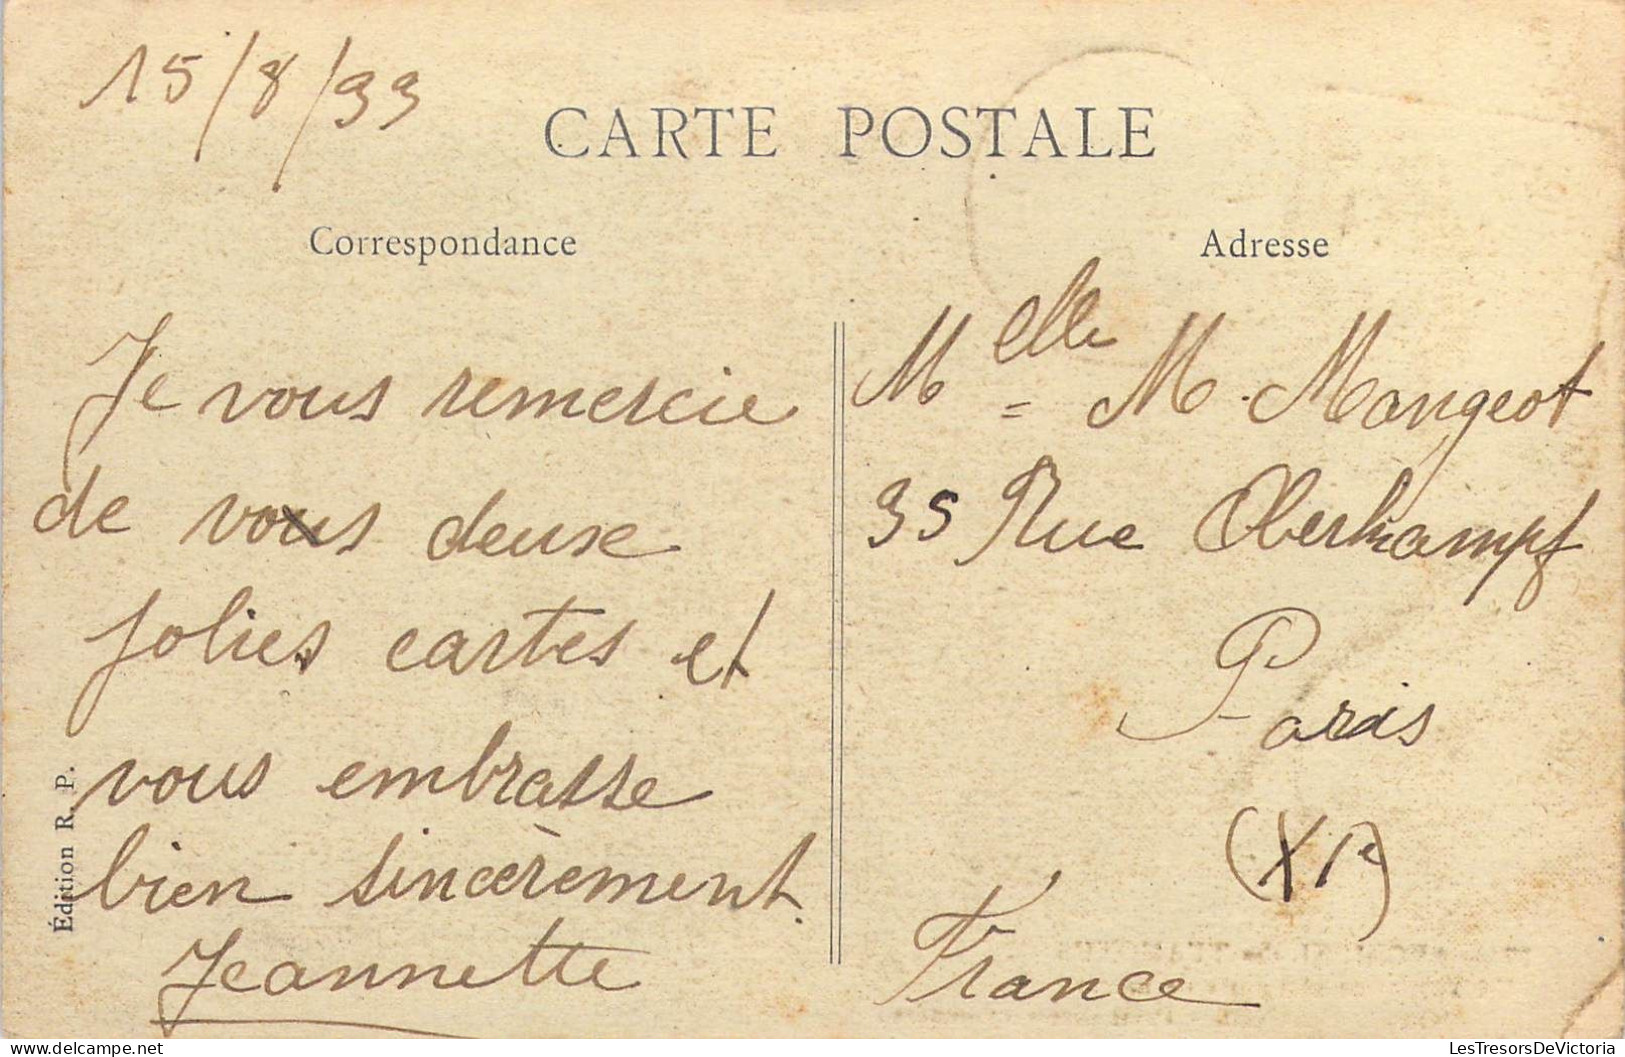 15/8/33
CARTE POSTALE
Correspondance
Je vous remercie
de vous deux
jolies cartes et
vous embrasse
bien sincèrement.
Jeannette
Édition R. P.
Adresse
Melle M. Mangeot
35 Rue Oberkampf
Paris
(XIe)
France
LesTresorsDeVictoria